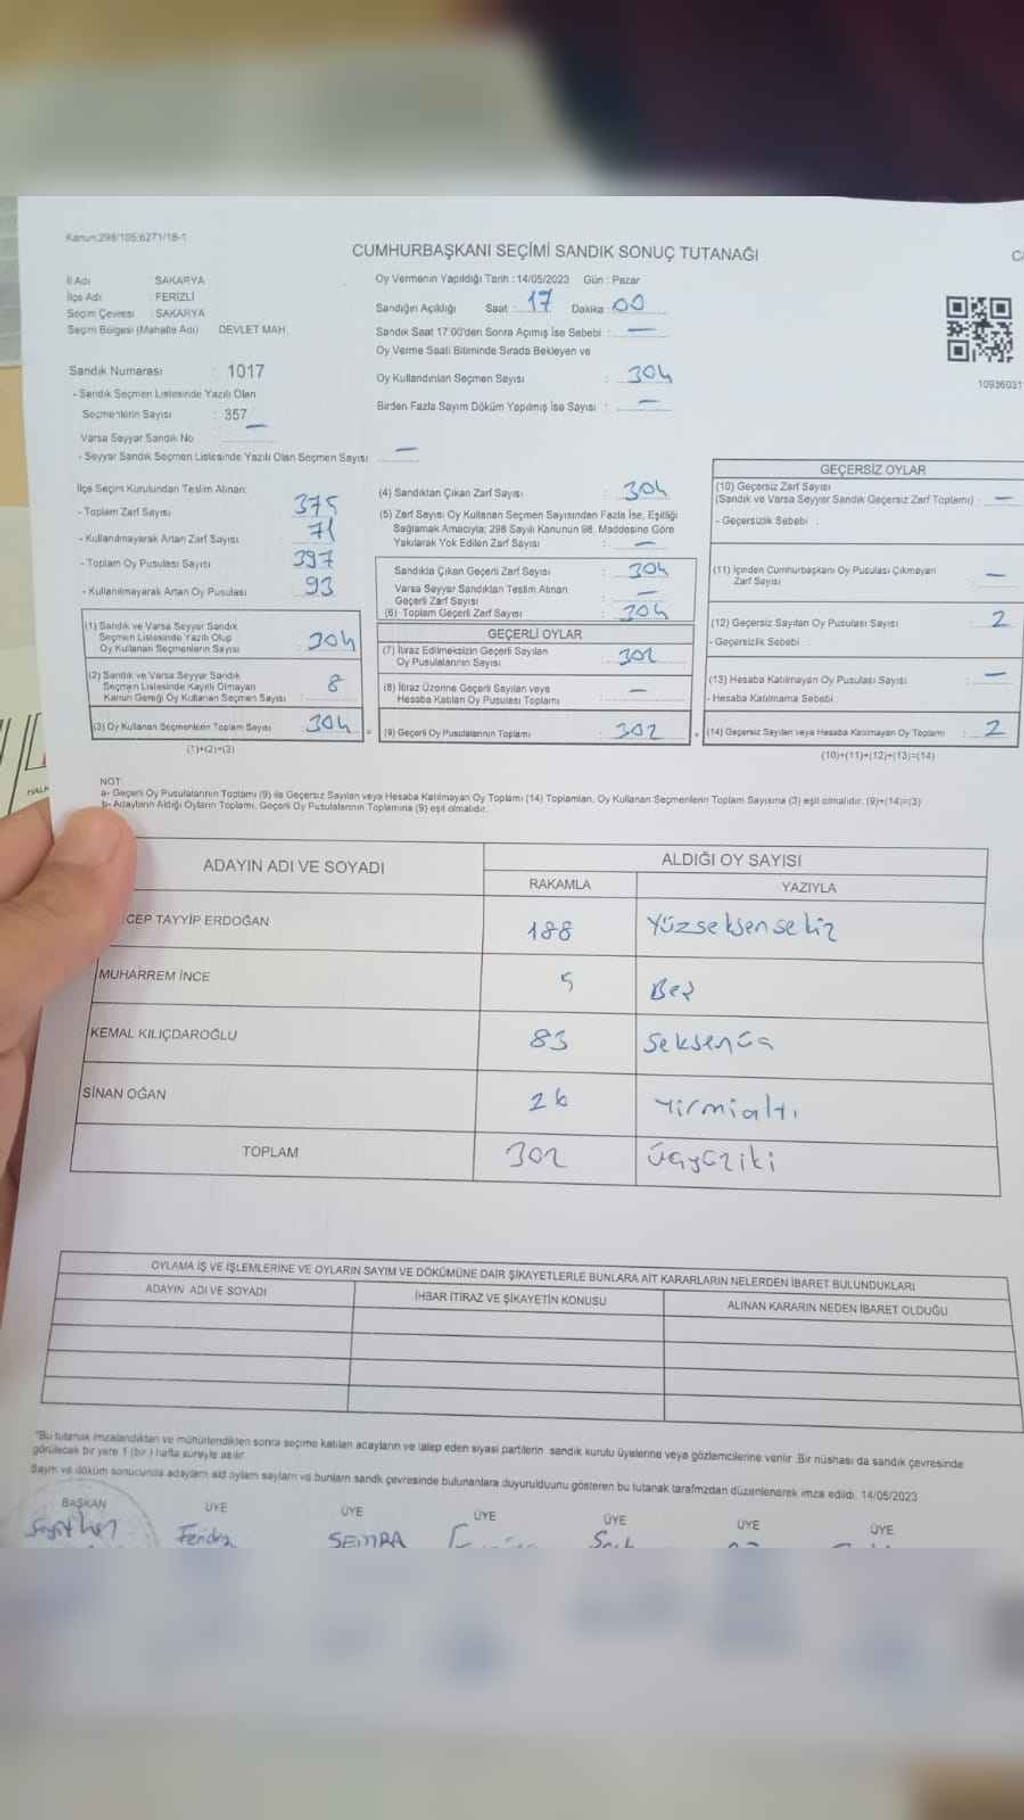 Kanun:298/105;6271/18-1
CUMHURBAŞKANI SEÇİMİ SANDIK SONUÇ TUTANAĞI
İl Adı : SAKARYA
İlçe Adı : FERİZLİ
Seçim Çevresi : SAKARYA
Seçim Bölgesi (Mahalle Adı) : DEVLET MAH.
Oy Vermenin Yapıldığı Tarih : 14/05/2023 Gün : Pazar
Sandığın Açıldığı Saat : 17 Dakika : 00
Sandık Saat 17:00'den Sonra Açılmış İse Sebebi : —
Oy Verme Saati Bitiminde Sırada Bekleyen ve
Oy Kullandırılan Seçmen Sayısı : 304
Birden Fazla Sayım Döküm Yapılmış İse Sayısı : —
10936031
Sandık Numarası : 1017
- Sandık Seçmen Listesinde Yazılı Olan
Seçmenlerin Sayısı : 357
Varsa Seyyar Sandık No : —
- Seyyar Sandık Seçmen Listesinde Yazılı Olan Seçmen Sayısı : —
İlçe Seçim Kurulundan Teslim Alınan:
- Toplam Zarf Sayısı : 375
- Kullanılmayarak Artan Zarf Sayısı : 71
- Toplam Oy Pusulası Sayısı : 397
- Kullanılmayarak Artan Oy Pusulası : 93
(1) Sandık ve Varsa Seyyar Sandık
Seçmen Listesinde Yazılı Olup
Oy Kullanan Seçmenlerin Sayısı : 304
(2) Sandık ve Varsa Seyyar Sandık
Seçmen Listesinde Kayıtlı Olmayan
Kanun Gereği Oy Kullanan Seçmen Sayısı : 8
(3) Oy Kullanan Seçmenlerin Toplam Sayısı : 304
(1)+(2)=(3)
(4) Sandıktan Çıkan Zarf Sayısı : 304
(5) Zarf Sayısı Oy Kullanan Seçmen Sayısından Fazla İse, Eşitliği
Sağlamak Amacıyla; 298 Sayılı Kanunun 98. Maddesine Göre
Yakılarak Yok Edilen Zarf Sayısı : —
Sandıkta Çıkan Geçerli Zarf Sayısı : 304
Varsa Seyyar Sandıktan Teslim Alınan
Geçerli Zarf Sayısı : —
(6) Toplam Geçerli Zarf Sayısı : 304
GEÇERLİ OYLAR
(7) İtiraz Edilmeksizin Geçerli Sayılan
Oy Pusulalarının Sayısı : 302
(8) İtiraz Üzerine Geçerli Sayılan veya
Hesaba Katılan Oy Pusulası Toplamı : —
(9) Geçerli Oy Pusulalarının Toplamı : 302
GEÇERSİZ OYLAR
(10) Geçersiz Zarf Sayısı
(Sandık ve Varsa Seyyar Sandık Geçersiz Zarf Toplamı) : —
- Geçersizlik Sebebi :
(11) İçinden Cumhurbaşkanı Oy Pusulası Çıkmayan
Zarf Sayısı : —
(12) Geçersiz Sayılan Oy Pusulası Sayısı : 2
- Geçersizlik Sebebi :
(13) Hesaba Katılmayan Oy Pusulası Sayısı : —
- Hesaba Katılmama Sebebi :
(14) Geçersiz Sayılan veya Hesaba Katılmayan Oy Toplamı : 2
(10)+(11)+(12)+(13)=(14)
NOT:
a- Geçerli Oy Pusulalarının Toplamı (9) ile Geçersiz Sayılan veya Hesaba Katılmayan Oy Toplamı (14) Toplamları, Oy Kullanan Seçmenlerin Toplam Sayısına (3) eşit olmalıdır. (9)+(14)=(3)
b- Adayların Aldığı Oyların Toplamı, Geçerli Oy Pusulalarının Toplamına (9) eşit olmalıdır.
ADAYIN ADI VE SOYADI
ALDIĞI OY SAYISI
RAKAMLA YAZIYLA
CEP TAYYİP ERDOĞAN 188 Yüzseksensekiz
MUHARREM İNCE 5 Beş
KEMAL KILIÇDAROĞLU 83 Seksenüç
SİNAN OĞAN 26 Yirmialtı
TOPLAM 302 Üçyüziki
OYLAMA İŞ VE İŞLEMLERİNE VE OYLARIN SAYIM VE DÖKÜMÜNE DAİR ŞİKAYETLERLE BUNLARA AİT KARARLARIN NELERDEN İBARET BULUNDUKLARI
ADAYIN ADI VE SOYADI İHBAR İTİRAZ VE ŞİKAYETİN KONUSU ALINAN KARARIN NEDEN İBARET OLDUĞU
"Bu tutanak imzalandıktan ve mühürlendikten sonra seçime katılan adayların ve talep eden siyasi partilerin sandık kurulu üyelerine veya gözlemcilerine verilir. Bir nüshası da sandık çevresinde
görülecek bir yere 1 (bir) hafta süreyle asılır.
Sayım ve döküm sonucunda adayların ald oyların sayıları ve bunların sandk çevresinde bulunanlara duyurulduunu gösteren bu tutanak tarafmzdan düzenlenerek imza edildi. 14/05/2023
BAŞKAN ÜYE ÜYE ÜYE ÜYE ÜYE ÜYE
SEMRA